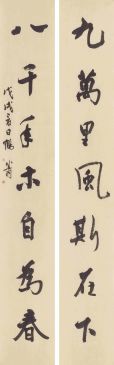 九萬里風斯在下
八千年木自為春
戊戌夏日